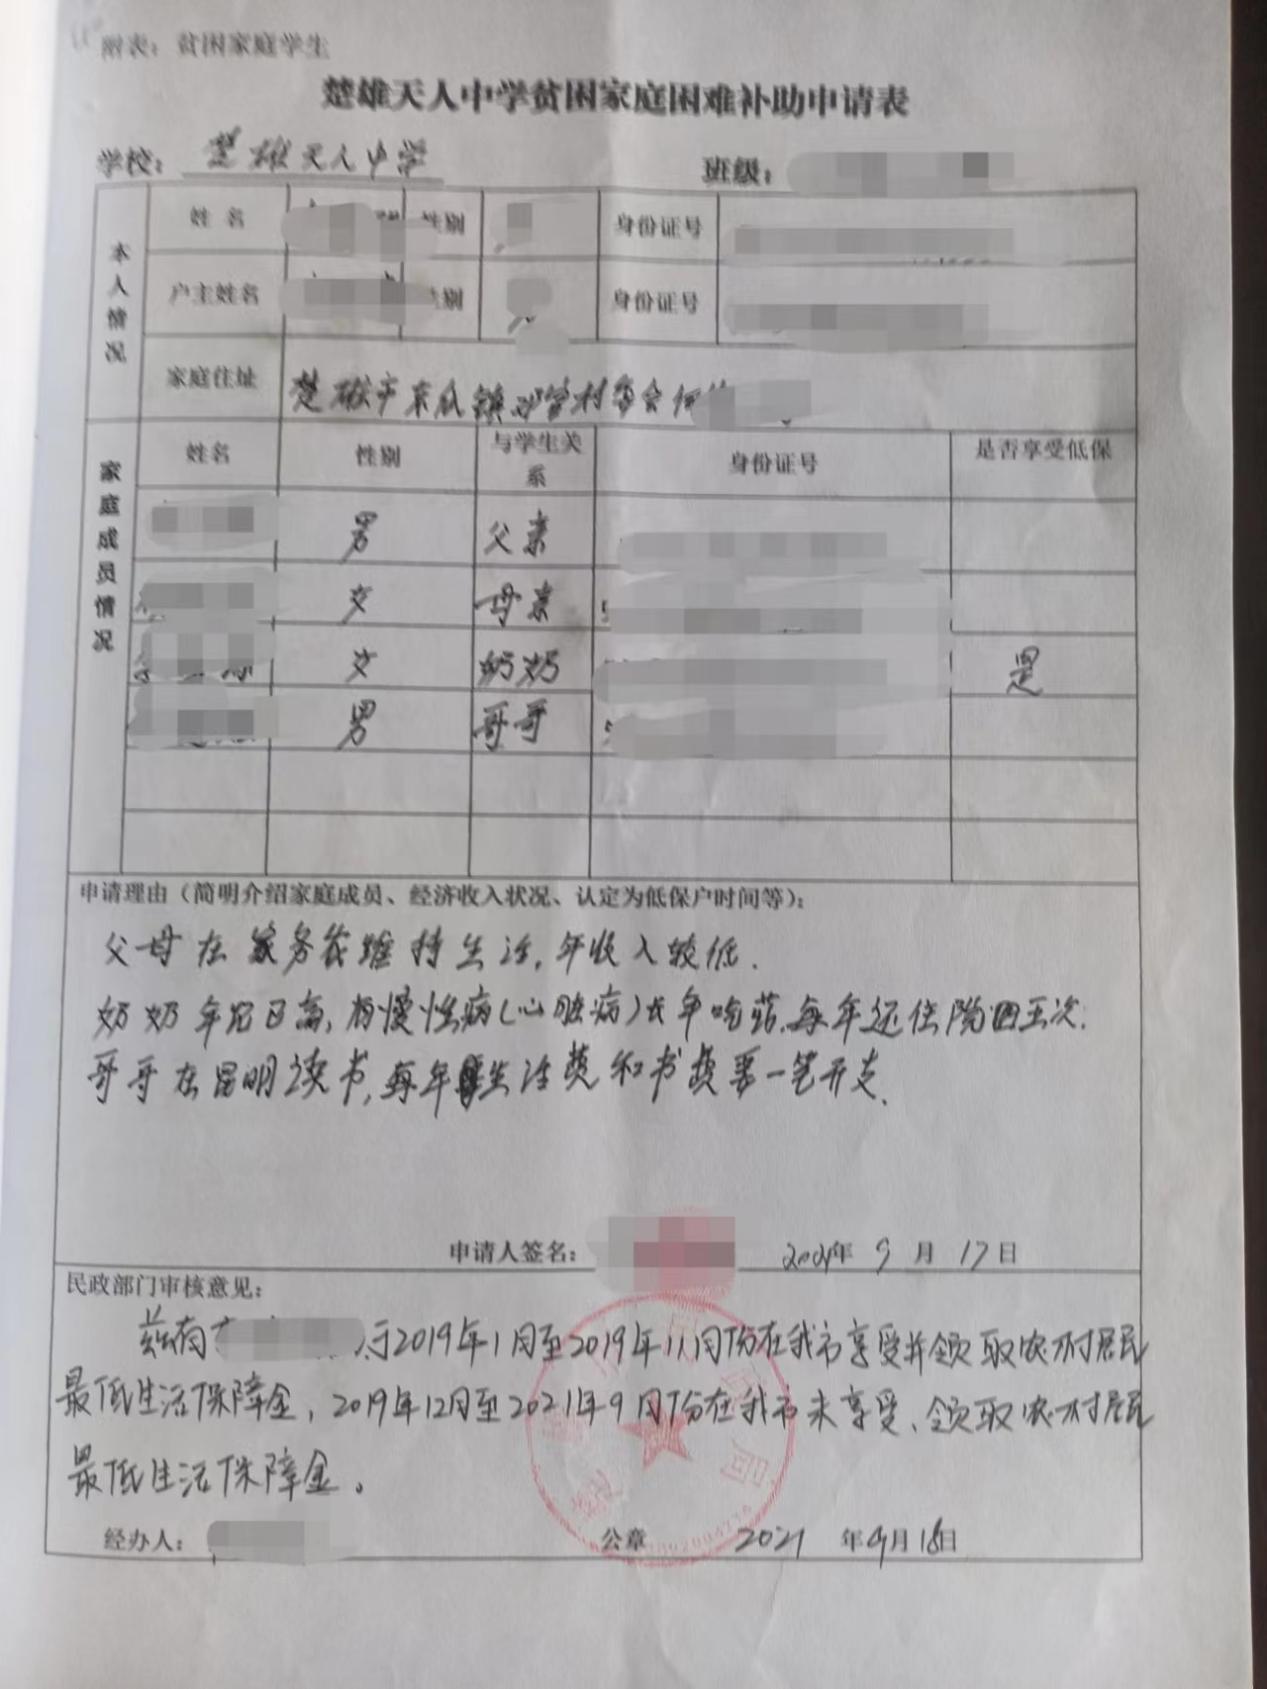 附表：贫困家庭学生
楚雄天人中学贫困家庭困难补助申请表
学校：楚雄天人中学 班级：
本人情况
姓名 性别 身份证号
户主姓名 性别 身份证号
家庭住址 楚雄市东瓜镇 村委会
家庭成员情况
姓名 性别 与学生关系 身份证号 是否享受低保
男 父亲
女 母亲
女 奶奶 是
男 哥哥
申请理由（简明介绍家庭成员、经济收入状况、认定为低保户时间等）：
父母在家务农维持生活，年收入较低.
奶奶年纪已高，有慢性病（心脏病）长年吃药，每年还住院四五次.
哥哥在昆明读书，每年生活费和书费要一笔开支.
申请人签名： 2021年9月17日
民政部门审核意见：
兹有 于2019年1月至2019年11月份在我市享受并领取农村居民
最低生活保障金，2019年12月至2021年9月份在我市未享受、领取农村居民
最低生活保障金。
经办人： 公章 2021年9月18日